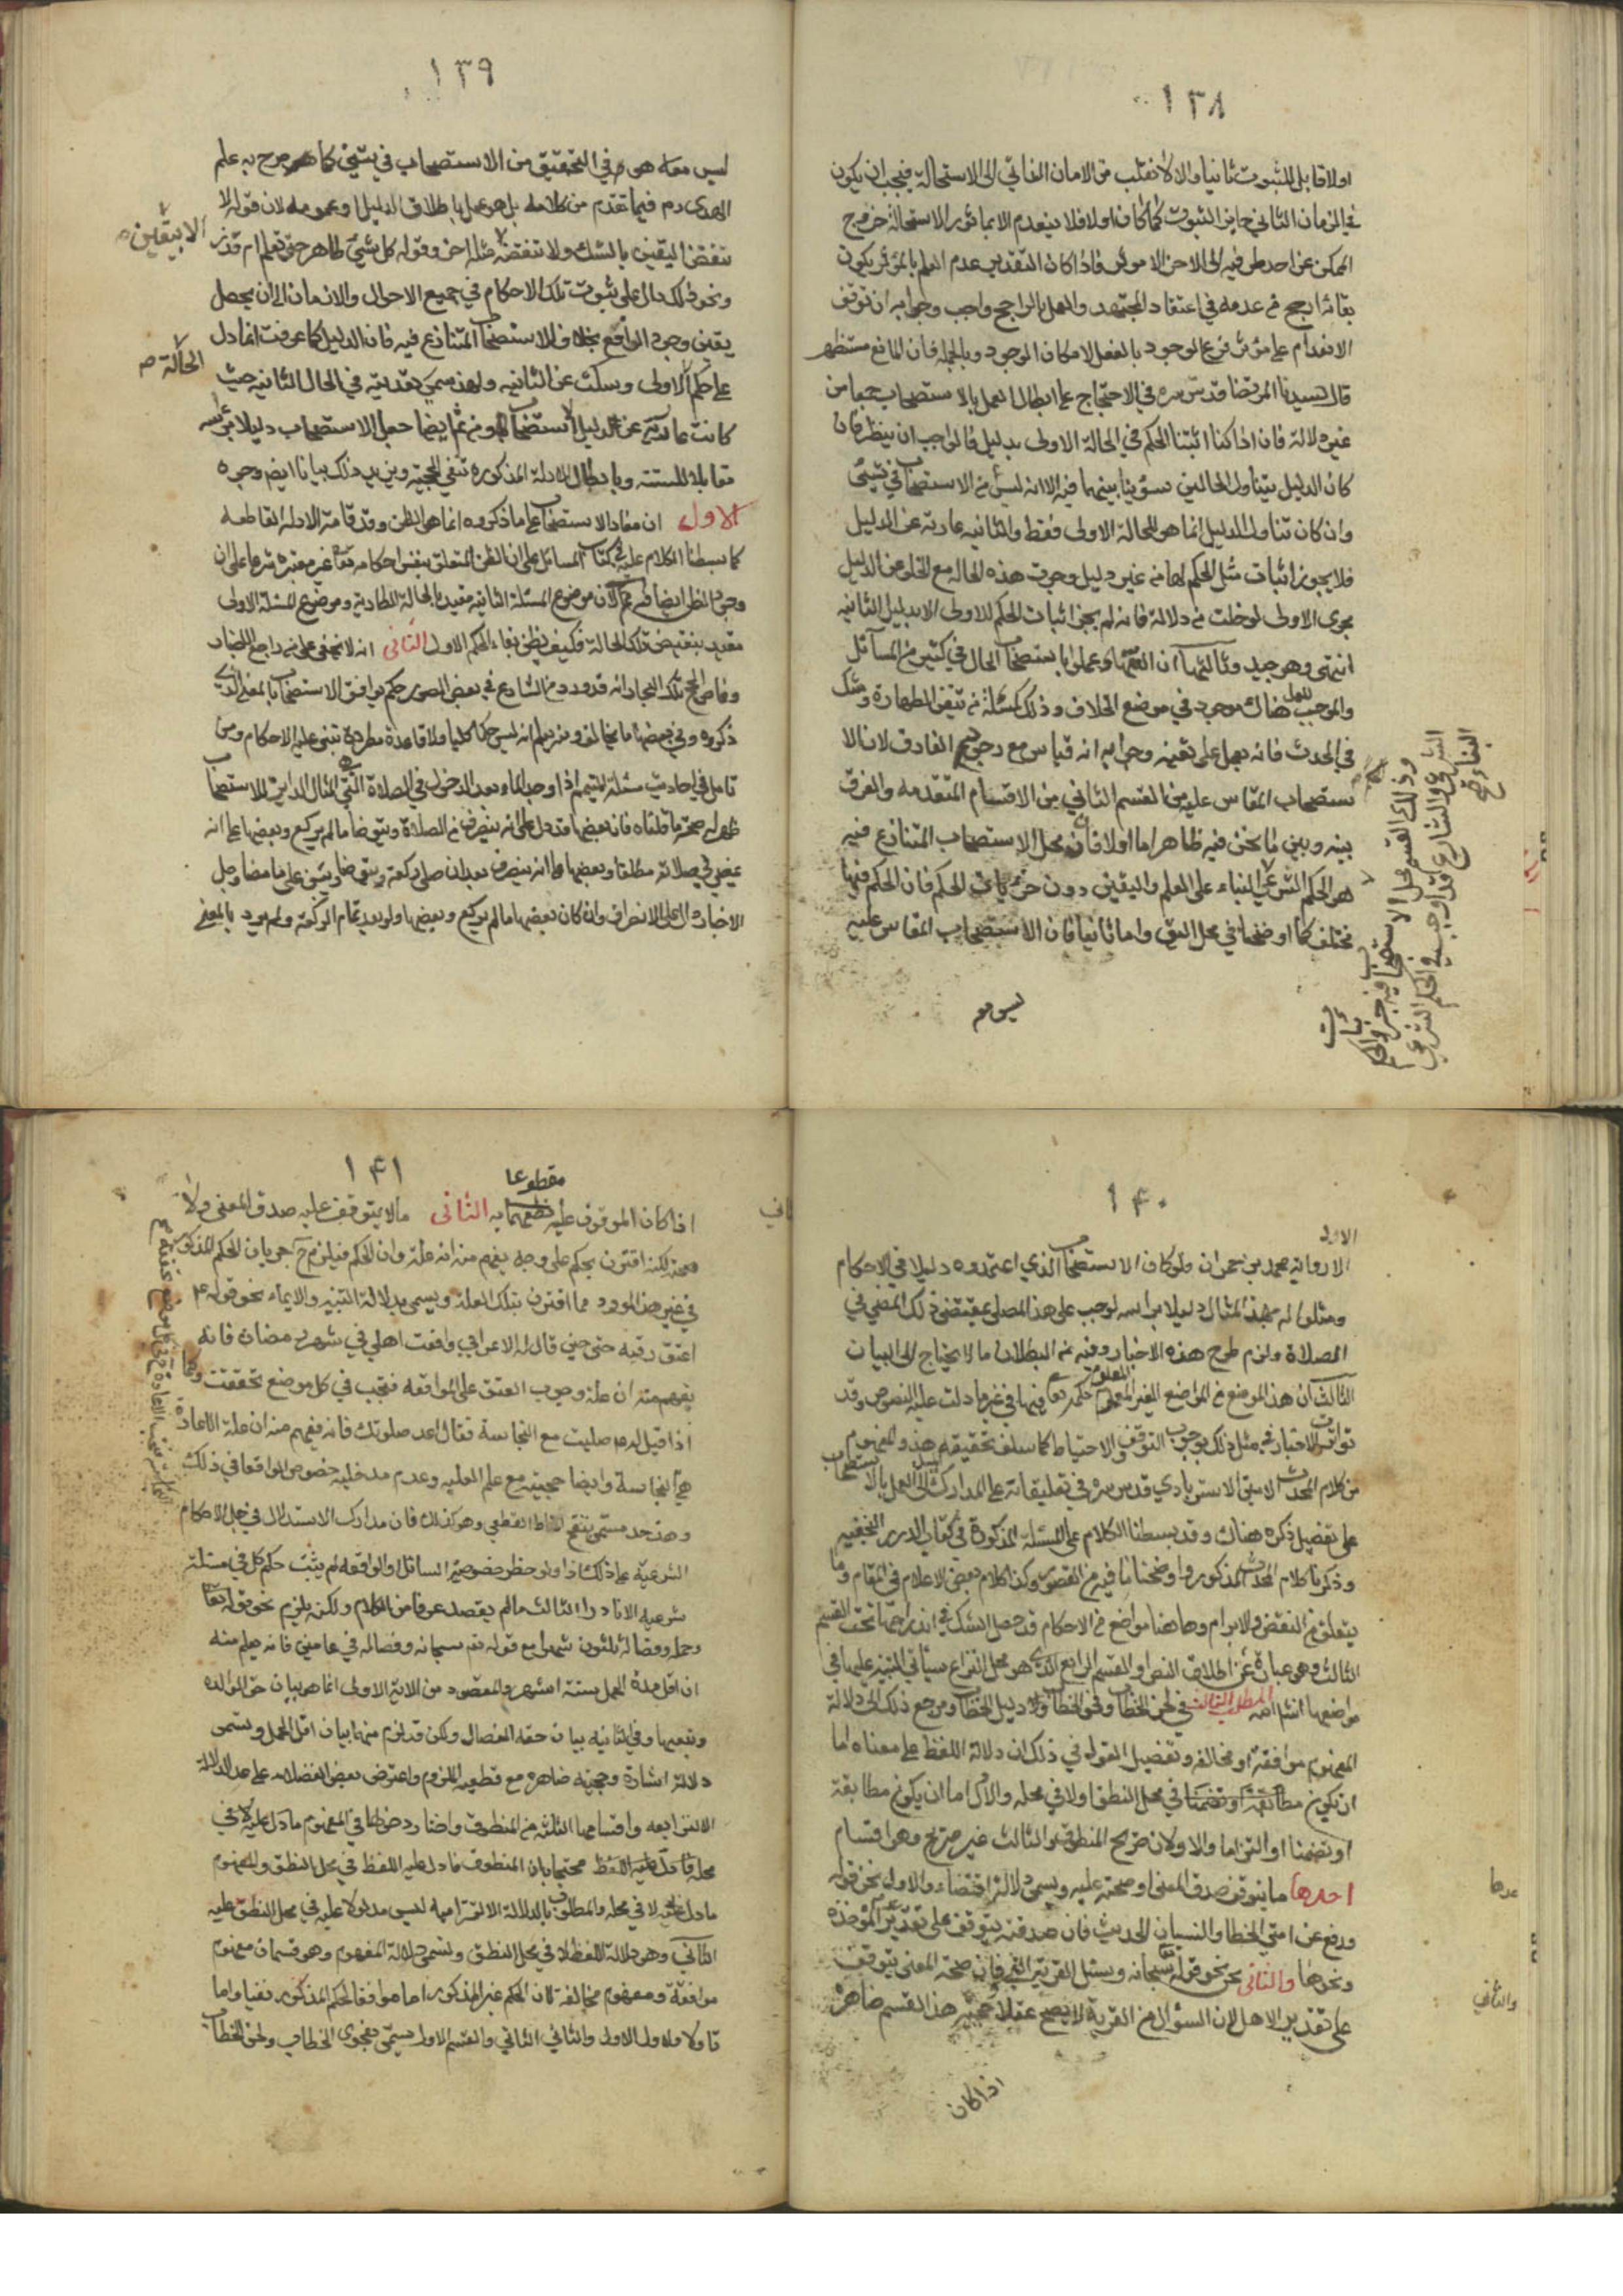 ١٣٨
اولا قابل للثبوت ثانيا والا لانقلب من الامكان الذاتي الى الاستحالة فيجب ان يكون
في الزمان الثاني جايز الثبوت كما كان اولا فلا ينعدم الا بمؤثر لاستحالة خروج
الممكن عن احد طرفيه الى الاخر الا لمؤثر فاذا كان التقدير عدم العلم بالمؤثر يكون
بقائه ارجح من عدمه في اعتقاد المجتهد والعمل بالراجح واجب وجوابه ان توقف
الانعدام على مؤثر فرع الوجود بالفعل لا مكان الوجود وبالجملة فان المانع مستظهر
قال سيدنا المرتضا قدس سره في الاحتجاج على ابطال العمل بالاستصحاب جمعا من
غير دلالة فان اذا كنا اثبتنا الحكم في الحالة الاولى بدليل فالواجب ان ينظر فان
كان الدليل يتناول الحالين سوينا بينهما فيه الا انه ليس من الاستصحاب في شيئ
وان كان تناول الدليل انما هو للحالة الاولى فقط والثانية عارية عن الدليل
فلا يجوز اثبات مثل الحكم لها من غير دليل وجرت هذه الحالة مع الخلو من الدليل
مجرى الاولى لو خلت من دلالة فانه لم يجز اثبات الحكم للاولى الا بدليل الثانية
انتهى وهو جيد وثالثها ان الفقهاء عملوا باستصحاب الحال في كثير من المسائل
والموجب للعمل هناك موجود في موضع الخلاف وذلك كمسئلة من تيقن الطهارة وشك
في الحدث فانه يعمل على يقينه وجوابه انه قياس مع وجود الفارق لان الا
ستصحاب المقاس عليه من القسم الثاني من الاقسام المتقدمه والفرق
بينه وبين ما نحن فيه ظاهر اما اولا فان محل الاستصحاب المتنازع فيه
هو الحكم الشرعي البناء على العلم واليقين دون جزئيات الحكم فان الحكم فيها
مختلف كما اوضحنا في محل اليق واما ثانيا فان الاستصحاب المقاس عليه
ليس معه
وذلك القسم محل الاستصحاب فيه جزئيات الحكم
الشرعي والشارع قد اوجب في الحكم الشرعي
البناء صح
١٣٩
ليس معه هو في التحقيق من الاستصحاب في شيئ كما صرح به علم
الهدى ره فيما تقدم من كلامه بل هو عمل باطلاق الدليل او عمومه لان قوله لا
تنقض اليقين بالشك ولا تنقضه مثله اخر وقوله كل شيئ طاهر حتى تعلم انه قذر
الا بيقين ص
ونحو ذلك دال على ثبوت تلك الاحكام في جميع الاحوال والازمان الى ان يحصل
يقين وجود الرافع بخلاف الاستصحاب المتنازع فيه فان الدليل كما عرفت انما دل
على حكم الاولى وسكت عن الثانيه ولهذا سمي تعديته في الحال الثانيه حيث
الحالة ص
كانت عارية عن الدليل الاستصحاب ومن ثم ايضا جعل الاستصحاب دليلا براسه
مقابلا للسنة وبابطال الادلة المذكوره تنفي الحجية ويزيد ذلك بيانا ايضا وجوه
الاول ان مفاد الاستصحاب على ما ذكروه انما هو الظن وقد قامت الادلة القاطعه
كما بسطنا الكلام عليه في كتاب المسائل على ان الظن المتعلق بنفس احكامه تعالى غير معتبر شرعا على ان
وجود الظن ايضا فيه ممنوع لان موضوع المسئلة الثانيه مقيد بالحالة الطارية وموضوع المسئلة الاولى
مقيد بنقيض تلك الحالة فكيف يظن بقاء الحكم الاول الثاني انه لا يخفى على من راجع الاخبار
وغاص لجج تلك البحار انه قد ورد من الشارع في بعض الصور حكم يوافق الاستصحاب بالمعنى الذي
ذكروه وفي بعضها ما يخالفه ومنه يعلم انه ليس حكما كليا ولا قاعدة مطردة تبنى عليه الاحكام ومن
تامل في احاديث مسئلة المتيمم اذا وجد الماء بعد الدخول في الصلاة التي المثال الدائر للاستصحاب
ظهر له صحة ما قلناه فان بعضها قد دل على انه ينصرف من الصلاة ويتوضا ما لم يركع وبعضها على انه
يمضي في صلاته مطلقا وبعضها على انه ينصرف بعد ان صلى ركعة ويتوضا ويبني على ما مضى وجل
الاخبار دال على الانصراف وان كان بعضها ما لم يركع وبعضها ولو بعد تمام الركعة ولم يرد بالمضي
١٤٠
الا رواية محمد بن حمران ولو كان الاستصحاب الذي اعتمدوه دليلا في الاحكام
ومثلوا له بهذا المثال دليلا براسه لوجب على هذا المصلي بمقتضى ذلك المضي في
الصلاة ولزم طرح هذه الاخبار وفيه من البطلان ما لا يحتاج الى البيان
الثالث ان هذا الموضع من المواضع الغير المعلوم حكمه تعالى فيها في غير ما دلت عليه النصوص وقد
تواترت الاخبار في مثل ذلك بوجوب التوقف والاحتياط كما سلف تحقيقه هذا والمفهوم
من كلام المحدث الامين الاستربادي قدس سره في تعليقاته على المدارك الميل الى العمل بالاستصحاب
على تفصيل ذكره هناك وقد بسطنا الكلام على المسئلة المذكورة في كتاب الدرر النجفيه
وذكرنا كلام المحدث المذكور واوضحنا ما فيه من القصور وكذا كلام بعض الاعلام في المقام وما
يتعلق به من النقض والابرام وهاهنا مواضع من الاحكام قد حصل الشك في اندراجها تحت القسم
الثالث وهو عبارة عن اطلاق النص او القسم الرابع الذي هو محل النزاع سيأتي التنبيه عليها في
مواضعها انشاء الله المطلب الثالث في لحن الخطاب وفحوى الخطاب ودليل الخطاب ومرجع ذلك الى دلالة
المفهوم موافقة او مخالفة وتفصيل القول في ذلك ان دلالة اللفظ على معناه اما
ان يكون في محل النطق اولا في محله والاول اما ان يكون مطابقة
او تضمنا او التزاما والاولان صريح المنطوق والثالث غير صريح وهو اقسام
احدها ما يتوقف صدق المعنى او صحته عليه ويسمى دلالة اقتضاء والاول نحو قوله
ورفع عن امتي الخطا والنسيان الحديث فان صدقه يتوقف على تقدير المؤاخذة
ونحوها والثاني نحو قوله سبحانه وسئل القرية فان صحة المعنى يتوقف
على تقدير الاهل لان السؤال من القرية لا يصح عقلا وحجية هذا القسم ظاهرة
اذا كان
١٤١
اذا كان الموقوف عليه مقطوعا به الثاني ما لا يتوقف عليه صدق المعنى ولا
صحته لكنه اقترن بحكم على وجه يفهم منه انه علة لذلك الحكم فيلزم ح جريان الحكم المذكور
في غير هذا المورد مما اقترن بتلك العلة ويسمى بدلالة التنبيه والايماء نحو قوله ع
اعتق رقبه حين قال له الاعرابي واقعت اهلي في شهر رمضان فانه
يفهم منه ان علة وجوب العتق هي المواقعه فتجب في كل موضع تحققت وكما
اذا قيل له ع صليت مع النجاسة فقال اعد صلوتك فانه يفهم منه ان علة الاعادة
هي النجاسة وايضا حجيته مع علم العليه وعدم مدخليه خصوص الواقعة في ذلك
وهذا احد مسمى تنقيح المناط القطعي وهو كذلك فان مدارك الاستدلال في جل الاحكام
الشرعية على ذلك اذا ولو لوحظ خصوصية السائل او الواقعه لم يثبت حكم كلي في مسئلة
شرعيه الا نادرا الثالث ما لم يقصد عرفا من الكلام ولكنه يلزم نحو قوله تعالى
وحمله وفصاله ثلثون شهرا مع قوله سبحانه وفصاله في عامين فانه يعلم منه
ان اقل مدة الحمل ستة اشهر والمقصود من الاية الاولى انما هو بيان حق الوالده
وتعبها وفي الثانيه بيان حقه الفصال ولكن قد لزم منها بيان اقل الحمل ويسمى
دلالة اشارة وحجيته ظاهره مع قطعيه اللزوم واعترض بعض الفضلاء على عد الدلالة
الالتزاميه واقسامها الثلثه من المنطوق واختار دخولها في المفهوم ما دل عليه لا في
محله محتجا بان المنطوق ما دل عليه اللفظ في محل النطق والمفهوم
ما دل عليه لا في محله والمطلوب بالدلالة الالتزاميه ليس مدلولا عليه في محل النطق عليه
الثاني وهو دلالة اللفظ لا في محل النطق ويسمى دلالة المفهوم وهو قسمان مفهوم
موافقة ومفهوم مخالفة لان الحكم غير المذكور اما موافق لحكم المذكور نفيا واثباتا
او لا والاول الاول والثاني الثاني والقسم الاول يسمى بفحوى الخطاب ولحن الخطاب